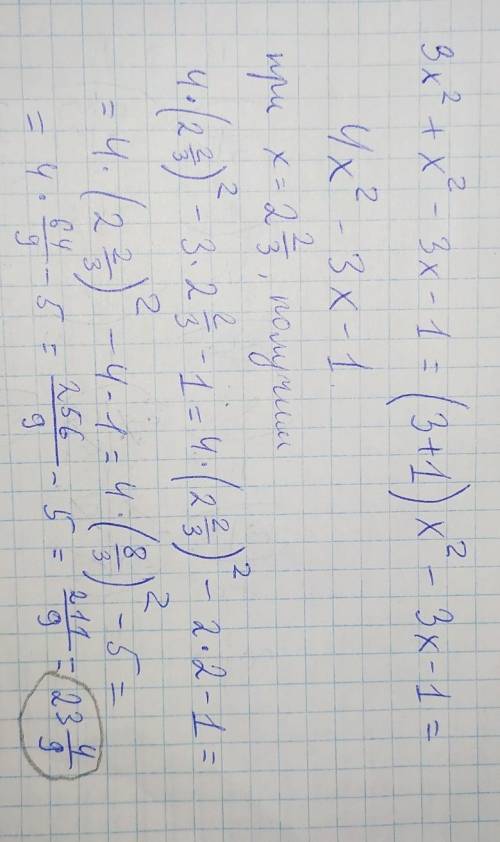 3x² + x² - 3x - 1 = (3+1)x² - 3x - 1 =
4x² - 3x - 1
при x = 2 2/3, получим
4·(2 2/3)² - 3·2 2/3 - 1 = 4·(2 2/3)² - 2·2 - 1 =
= 4·(2 2/3)² - 4 - 1 = 4·(8/3)² - 5 =
= 4·64/9 - 5 = 256/9 - 5 = 211/9 = 23 4/9